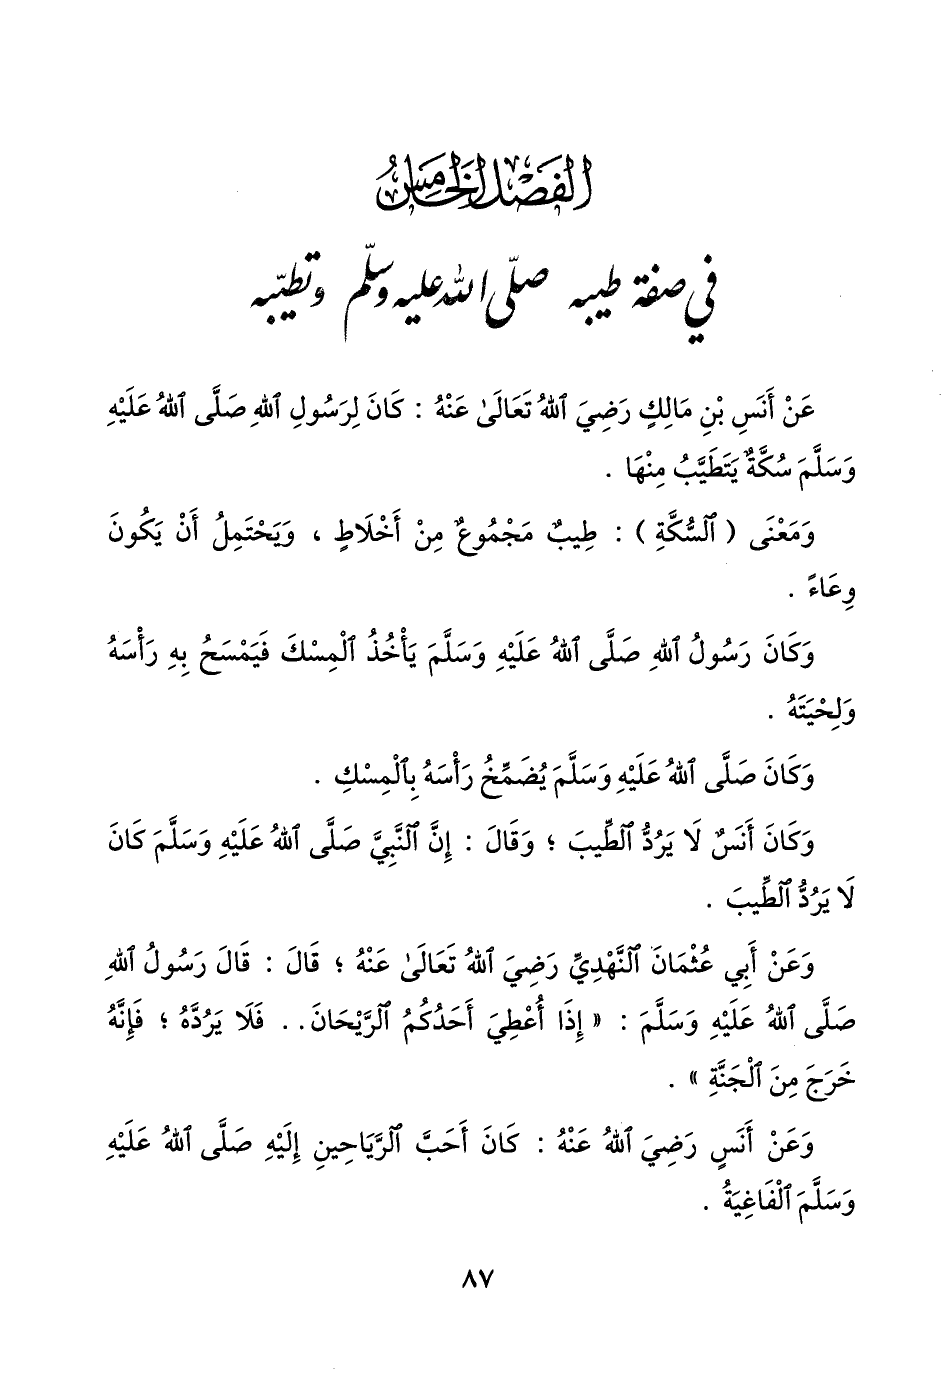 الفَصْلُ الخَامِسُ
في صفة طيبه صلّى الله عليه وسلّم وتطيّبه
عَنْ أَنَسِ بْنِ مَالِكٍ رَضِيَ ٱللهُ تَعَالَىٰ عَنْهُ : كَانَ لِرَسُولِ ٱللهِ صَلَّى ٱللهُ عَلَيْهِ
وَسَلَّمَ سُكَّةٌ يَتَطَيَّبُ مِنْهَا .
وَمَعْنَى ( ٱلسُّكَّةِ ) : طِيبٌ مَجْمُوعٌ مِنْ أَخْلَاطٍ ، وَيَحْتَمِلُ أَنْ يَكُونَ
وِعَاءً .
وَكَانَ رَسُولُ ٱللهِ صَلَّى ٱللهُ عَلَيْهِ وَسَلَّمَ يَأْخُذُ ٱلْمِسْكَ فَيَمْسَحُ بِهِ رَأْسَهُ
وَلِحْيَتَهُ .
وَكَانَ صَلَّى ٱللهُ عَلَيْهِ وَسَلَّمَ يُضَمِّخُ رَأْسَهُ بِٱلْمِسْكِ .
وَكَانَ أَنَسٌ لَا يَرُدُّ ٱلطِّيبَ ؛ وَقَالَ : إِنَّ ٱلنَّبِيَّ صَلَّى ٱللهُ عَلَيْهِ وَسَلَّمَ كَانَ
لَا يَرُدُّ ٱلطِّيبَ .
وَعَنْ أَبِي عُثْمَانَ ٱلنَّهْدِيِّ رَضِيَ ٱللهُ تَعَالَىٰ عَنْهُ ؛ قَالَ : قَالَ رَسُولُ ٱللهِ
صَلَّى ٱللهُ عَلَيْهِ وَسَلَّمَ : « إِذَا أُعْطِيَ أَحَدُكُمُ ٱلرَّيْحَانَ . . فَلَا يَرُدَّهُ ؛ فَإِنَّهُ
خَرَجَ مِنَ ٱلْجَنَّةِ » .
وَعَنْ أَنَسٍ رَضِيَ ٱللهُ عَنْهُ : كَانَ أَحَبَّ ٱلرَّيَاحِينِ إِلَيْهِ صَلَّى ٱللهُ عَلَيْهِ
وَسَلَّمَ ٱلْفَاغِيَةُ .
٨٧